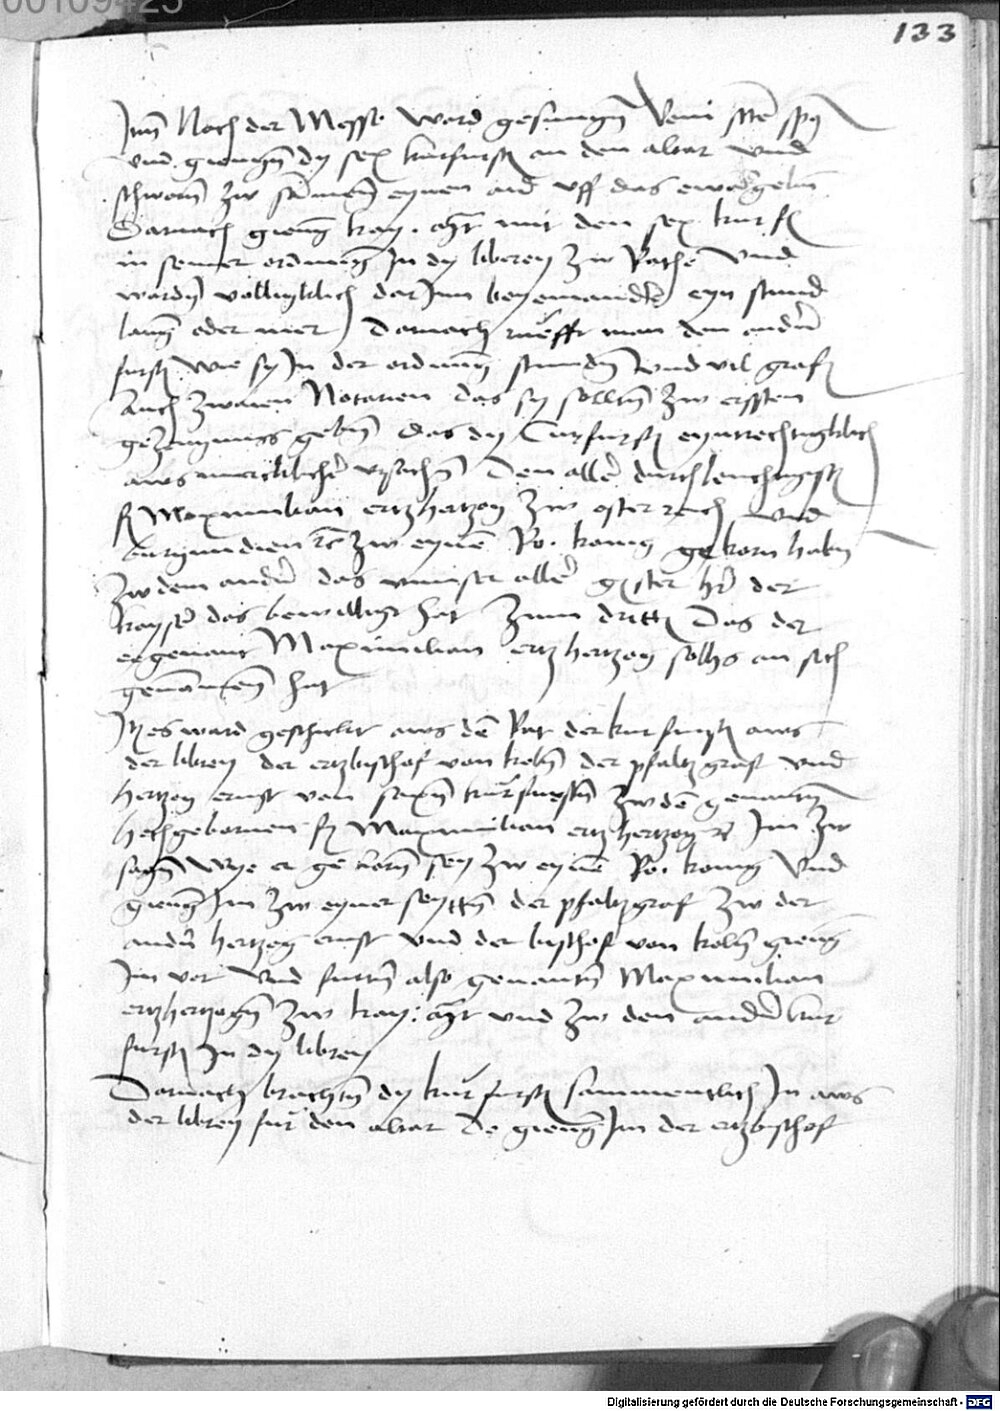 00109425
133
Itm Nach der Messe ward gesungen Veni scte spus
vnd giengen dy sex kurfursten an den altar vnd
schworn zw samen eynen aid vff das ewangelium
Darnach gieng kay. mt mit den sex kurfn
in seiner ordnung In dy liberey zw Rathe vnd
wardn volligklich dar Inn beyeinander eyn stund
lang oder mer Darnach rüefft man den andern
fursten wie sy In der ordnung stunden vnd vil grafen
Auch zwaien Notarien das sy sollten zw ersten
gezeugnuss geben das dy Curfursten eyntrechtigklich
aws mercklicher vrsachen Den aller durchleuchtigisten
fn Maximilian ertzhertzog zw osterreich vnd
burgundien etc zw eynem Ro. konig gekorn haben
zw dem andern das vnnser aller gster her der
kayser das bewilligt hat Zum dritten Das der
egenant Maximilian ertzhertzog solhs an sich
genommen hat
Itm es ward geschickt aws dem Rat der kurfursten aws
der librey der ertzbischof von koln der pfaltzgraf vnd
hertzog ernst von saxen kürfursten zw dem genanten
hochgebornen fn Maximilian ertzhertzog etc Im zw
sagen Wye er gekorn sey zw eynem Ro. konig Vnd
gieng Im zw eyner seytten der pfaltzgraf zw der
andern hertzog ernst vnd der bischof von koln gieng
Im vor Vnd furten also genanten Maximilian
ertzhertzogen zw kay. mt vnd zw den andern kur
fursten In dy librey
Darnach brachten dy kürfursten sammentlich In aws
der librey für den altar Do gieng Im der ertzbischof
Digitalisierung gefördert durch die Deutsche Forschungsgemeinschaft - DFG